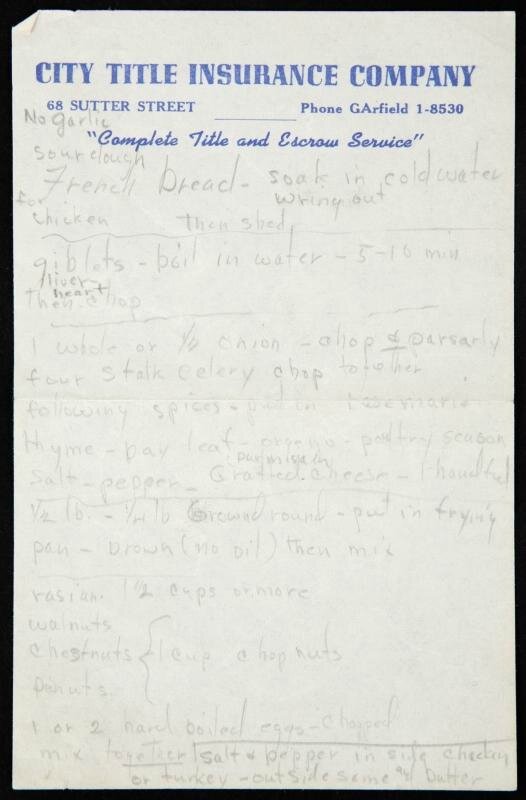 CITY TITLE INSURANCE COMPANY
68 SUTTER STREET Phone GArfield 1-8530
"Complete Title and Escrow Service"
No Garlic
sourdough
French Bread - soak in cold water
wring out
for
chicken then shed
giblets - boil in water - 5-10 min
liver-
heart
then chop
1 whole or 1/2 onion - chop & parsarly
four stalk celery chop together
following spices - put in
thyme - bay leaf - oregeno - poultry season
parmisian
salt - pepper - Gratted cheese - 1 handful
1/2 lb. - 1/4 lb Ground round - put in frying
pan - brown (no oil) then mix
rasian. 1 1/2 cups or more
walnuts
chestnuts { 1 cup chop nuts
panuts.
1 or 2 hard boiled eggs - chopped
mix together salt & pepper in side chicken
or turkey - outside same & butter